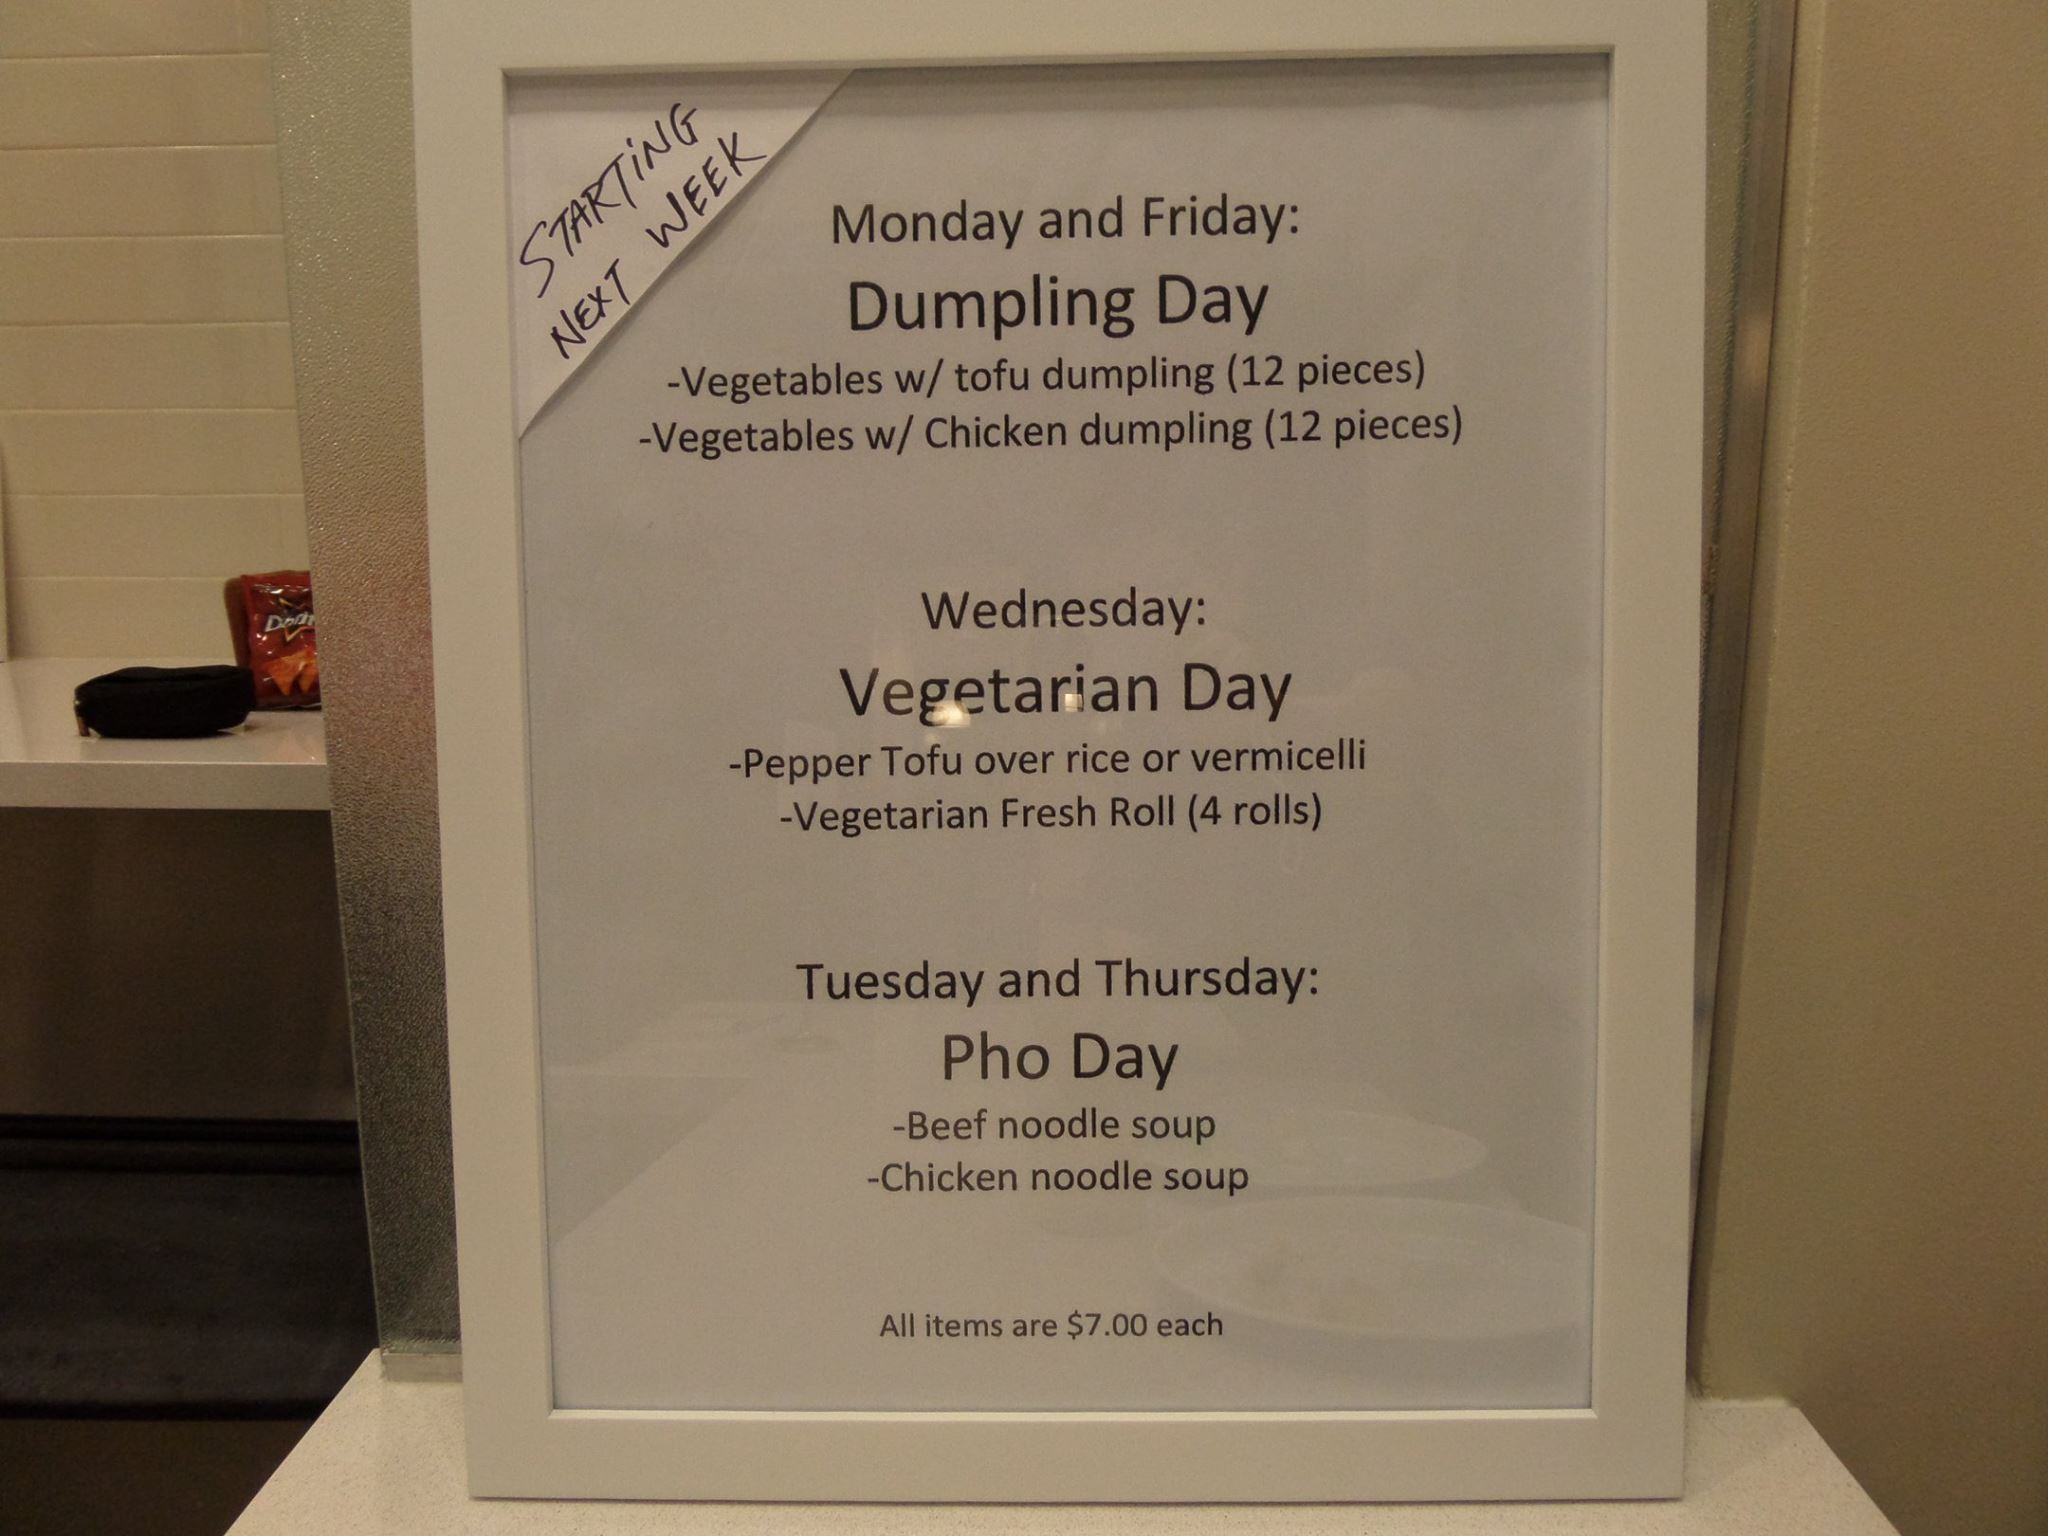 STARTiNG
NEXT WEEK
Monday and Friday:
Dumpling Day
-Vegetables w/ tofu dumpling (12 pieces)
-Vegetables w/ Chicken dumpling (12 pieces)
Wednesday:
Vegetarian Day
-Pepper Tofu over rice or vermicelli
-Vegetarian Fresh Roll (4 rolls)
Tuesday and Thursday:
Pho Day
-Beef noodle soup
-Chicken noodle soup
All items are $7.00 each